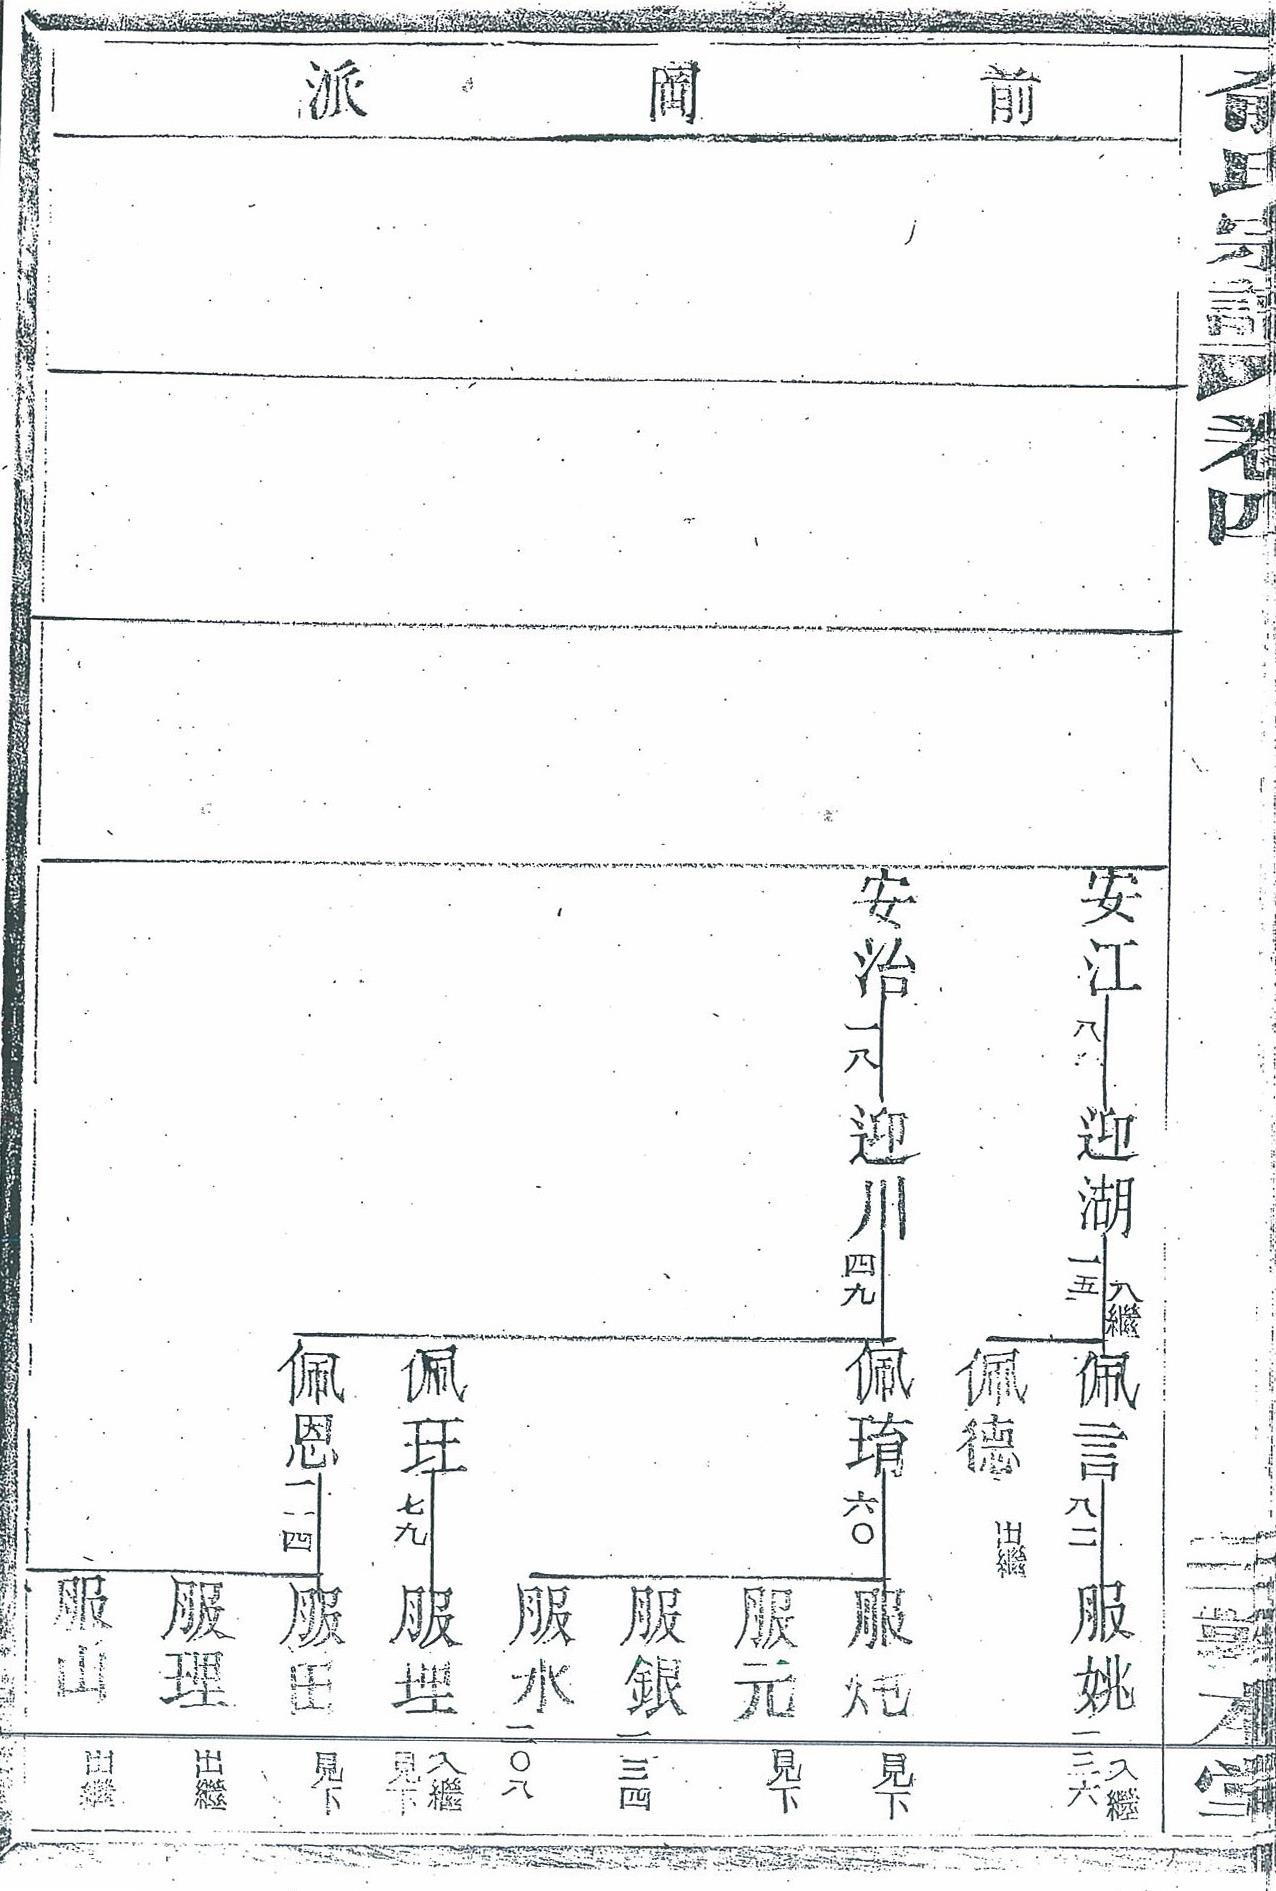 宗譜
卷四
堂
前岡派
安江
迎湖
一五
入繼
佩言
八二
服姚
一三六
入繼
佩德
出繼
安治
一八
迎川
四九
佩琦
六〇
服炮
見下
服元
見下
服銀
一三四
服水
二〇八
佩玨
七九
服理
入繼
見下
佩恩
一一四
服田
見下
服理
出繼
服山
出繼